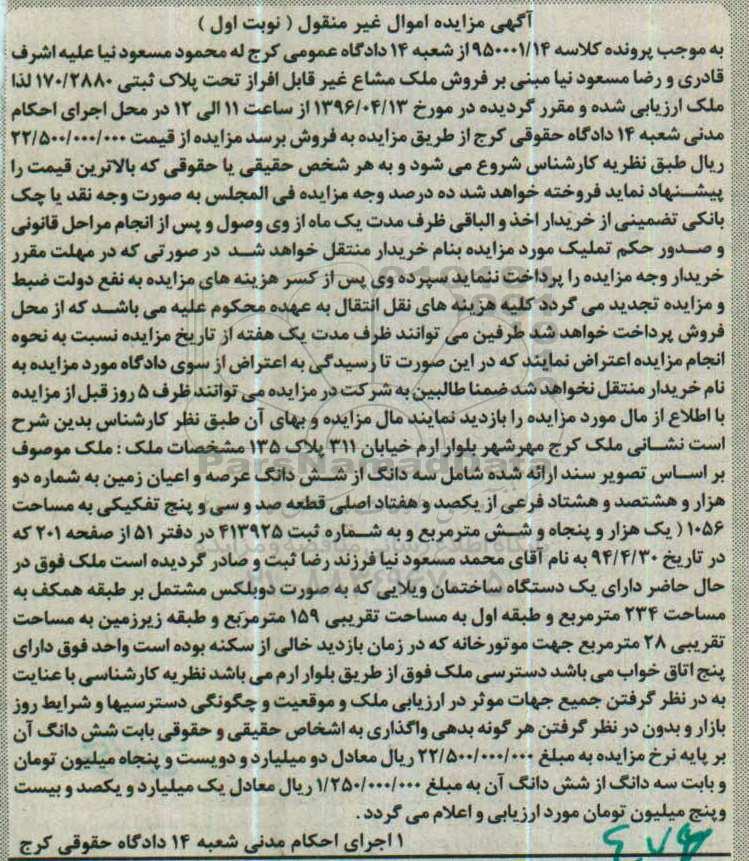 آگهی مزایده اموال غیر منقول ( نوبت اول )
به موجب پرونده کلاسه ۹۵۰۰۰۱/۱۴ از شعبه ۱۴ دادگاه عمومی کرج له محمود مسعود نیا علیه اشرف
قادری و رضا مسعود نیا مبنی بر فروش ملک مشاع غیر قابل افراز تحت پلاک ثبتی ۱۷۰/۲۸۸۰ لذا
ملک ارزیابی شده و مقرر گردیده در مورخ ۱۳۹۶/۰۴/۱۳ از ساعت ۱۱ الی ۱۲ در محل اجرای احکام
مدنی شعبه ۱۴ دادگاه حقوقی کرج از طریق مزایده به فروش برسد مزایده از قیمت ۲۲/۵۰۰/۰۰۰/۰۰۰
ریال طبق نظریه کارشناس شروع می شود و به هر شخص حقیقی یا حقوقی که بالاترین قیمت را
پیشنهاد نماید فروخته خواهد شد ده درصد وجه مزایده فی المجلس به صورت وجه نقد یا چک
بانکی تضمینی از خریدار اخذ و الباقی ظرف مدت یک ماه از وی وصول و پس از انجام مراحل قانونی
و صدور حکم تملیک مورد مزایده بنام خریدار منتقل خواهد شد در صورتی که در مهلت مقرر
خریدار وجه مزایده را پرداخت ننماید سپرده وی پس از کسر هزینه های مزایده به نفع دولت ضبط
و مزایده تجدید می گردد کلیه هزینه های نقل انتقال به عهده محکوم علیه می باشد که از محل
فروش پرداخت خواهد شد طرفین می توانند ظرف مدت یک هفته از تاریخ مزایده نسبت به نحوه
انجام مزایده اعتراض نمایند که در این صورت تا رسیدگی به اعتراض از سوی دادگاه مورد مزایده به
نام خریدار منتقل نخواهد شد ضمنا طالبین به شرکت در مزایده می توانند ظرف ۵ روز قبل از مزایده
با اطلاع از مال مورد مزایده را بازدید نمایند مال مزایده و بهای آن طبق نظر کارشناس بدین شرح
است نشانی ملک کرج مهرشهر بلوار ارم خیابان ۳۱۱ پلاک ۱۳۵ مشخصات ملک : ملک موصوف
بر اساس تصویر سند ارائه شده شامل سه دانگ از شش دانگ عرصه و اعیان زمین به شماره دو
هزار و هشتصد و هشتاد فرعی از یکصد و هفتاد اصلی قطعه صد و سی و پنج تفکیکی به مساحت
۱۰۵۶ ( یک هزار و پنجاه و شش مترمربع و به شماره ثبت ۴۱۳۹۲۵ در دفتر ۵۱ از صفحه ۲۰۱ که
در تاریخ ۹۴/۴/۳۰ به نام آقای محمد مسعود نیا فرزند رضا ثبت و صادر گردیده است ملک فوق در
حال حاضر دارای یک دستگاه ساختمان ویلایی که به صورت دوبلکس مشتمل بر طبقه همکف به
مساحت ۲۳۴ مترمربع و طبقه اول به مساحت تقریبی ۱۵۹ مترمربع و طبقه زیرزمین به مساحت
تقریبی ۲۸ مترمربع جهت موتورخانه که در زمان بازدید خالی از سکنه بوده است واحد فوق دارای
پنج اتاق خواب می باشد دسترسی ملک فوق از طریق بلوار ارم می باشد نظریه کارشناسی با عنایت
به در نظر گرفتن جمیع جهات موثر در ارزیابی ملک و موقعیت و چگونگی دسترسیها و شرایط روز
بازار و بدون در نظر گرفتن هر گونه بدهی واگذاری به اشخاص حقیقی و حقوقی بابت شش دانگ آن
بر پایه نرخ مزایده به مبلغ ۲۲/۵۰۰/۰۰۰/۰۰۰ ریال معادل دو میلیارد و دویست و پنجاه میلیون تومان
و بابت سه دانگ از شش دانگ آن به مبلغ ۱/۲۵۰/۰۰۰/۰۰۰ ریال معادل یک میلیارد و یکصد و بیست
و پنج میلیون تومان مورد ارزیابی و اعلام می گردد .
۱ اجرای احکام مدنی شعبه ۱۴ دادگاه حقوقی کرج